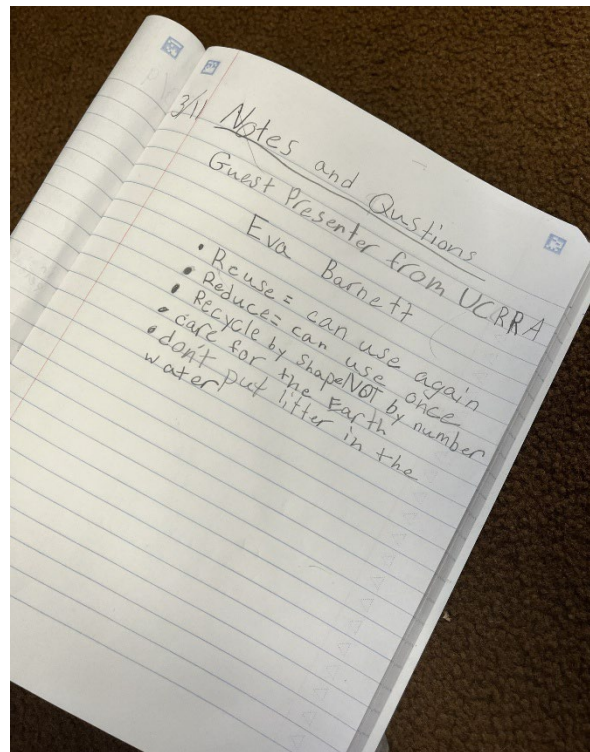 3/11 Notes and Qustions
Guest Presenter from UCRRA
Eva Barnett
• Reuse = can use again
• Reduce = can use once
• Recycle by shape NOT by number
• care for the Earth
• don't put litter in the
water!